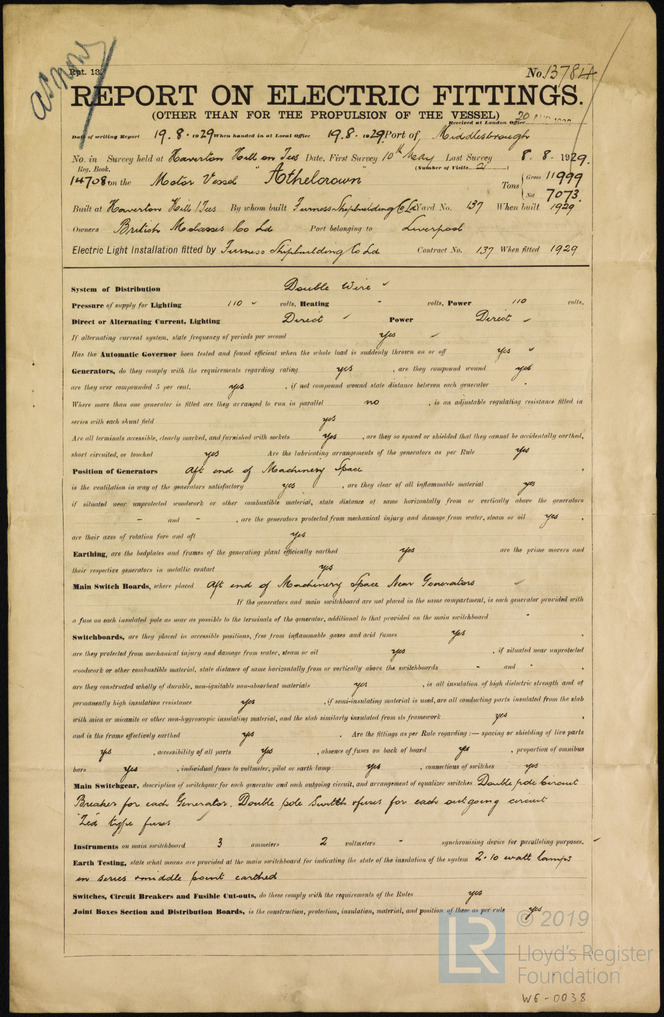 Rpt. 13.
No. 13784
REPORT ON ELECTRIC FITTINGS.
(OTHER THAN FOR THE PROPULSION OF THE VESSEL)
Received at London Office
Date of writing Report 19.8.1929 When handed in at Local Office 19.8.1929 Port of Middlesbrough
No. in Survey held at Haverton Hill on Tees Date, First Survey 10th May Last Survey 8.8.1929.
Reg. Book. (Number of Visits 21)
14708 on the Motor Vessel "Athelcrown" Tons Gross 11999 Net 7073.
Built at Haverton Hill /Tees By whom built Furness Shipbuilding Co Ld Yard No. 137 When built 1929
Owners British Molasses Co Ld Port belonging to Liverpool
Electric Light Installation fitted by Furness Shipbuilding Co Ld Contract No. 137 When fitted 1929
System of Distribution Double Wire
Pressure of supply for Lighting 110 volts, Heating - volts, Power 110 volts.
Direct or Alternating Current, Lighting Direct Power Direct
If alternating current system, state frequency of periods per second Yes
Has the Automatic Governor been tested and found efficient when the whole load is suddenly thrown on or off Yes
Generators, do they comply with the requirements regarding rating yes, are they compound wound yes
are they over compounded 5 per cent. yes, if not compound wound state distance between each generator -
Where more than one generator is fitted are they arranged to run in parallel no, is an adjustable regulating resistance fitted in
series with each shunt field yes
Are all terminals accessible, clearly marked, and furnished with sockets yes, are they so spaced or shielded that they cannot be accidentally earthed,
short circuited, or touched yes Are the lubricating arrangements of the generators as per Rule yes
Position of Generators Aft end of Machinery Space
is the ventilation in way of the generators satisfactory yes, are they clear of all inflammable material yes
if situated near unprotected woodwork or other combustible material, state distance of same horizontally from or vertically above the generators
- and -, are the generators protected from mechanical injury and damage from water, steam or oil yes.
are their axes of rotation fore and aft yes
Earthing, are the bedplates and frames of the generating plant efficiently earthed yes are the prime movers and
their respective generators in metallic contact yes
Main Switch Boards, where placed Aft end of Machinery Space Near Generators
If the generators and main switchboard are not placed in the same compartment, is each generator provided with
a fuse on each insulated pole as near as possible to the terminals of the generator, additional to that provided on the main switchboard -
Switchboards, are they placed in accessible positions, free from inflammable gases and acid fumes yes
are they protected from mechanical injury and damage from water, steam or oil yes, if situated near unprotected
woodwork or other combustible material, state distance of same horizontally from or vertically above the switchboards - and -
are they constructed wholly of durable, non-ignitable non-absorbent materials yes, is all insulation of high dielectric strength and of
permanently high insulation resistance yes, if semi-insulating material is used, are all conducting parts insulated from the slab
with mica or micanite or other non-hygroscopic insulating material, and the slab similarly insulated from its framework yes
and is the frame effectively earthed yes. Are the fittings as per Rule regarding :— spacing or shielding of live parts
yes, accessibility of all parts yes, absence of fuses on back of board yes, proportion of omnibus
bars yes, individual fuses to voltmeter, pilot or earth lamp yes, connections of switches yes
Main Switchgear, description of switchgear for each generator and each outgoing circuit, and arrangement of equalizer switches Double pole Circuit
Breaker for each Generator. Double pole Switch & fuses for each outgoing circuit
"Zed" type fuses
Instruments on main switchboard 3 ammeters 2 voltmeters - synchronising device for paralleling purposes.
Earth Testing, state what means are provided at the main switchboard for indicating the state of the insulation of the system 2-10 watt lamps
in series & middle point earthed
Switches, Circuit Breakers and Fusible Cut-outs, do these comply with the requirements of the Rules yes
Joint Boxes Section and Distribution Boards, is the construction, protection, insulation, material, and position of these as per rule yes
© 2019
LR
Lloyd's Register
Foundation
WE-0038